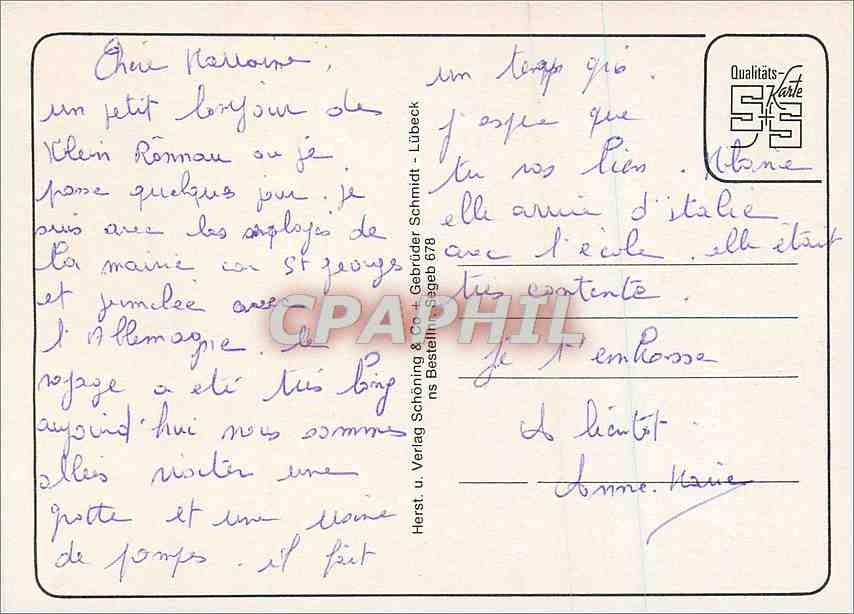 Chère Marraine,
un petit bonjour des
Klein Rönnau ou je
passe quelques jour. je
suis avec les employés de
la mairie car St georges
et jumelée avec
l'Allemagne. le
voyage a été très long
aujourd'hui nous sommes
allés visiter une
grotte et une usine
de pompes. il fait
un temps gris.
j'espère que
tu vas bien.
elle arrive d'italie
avec l'école. elle était
très contente.
je t'embrasse
A bientôt
Anne-Marie
Herst. u. Verlag Schöning & Co + Gebrüder Schmidt - Lübeck
ns Bestellnr. Segeb 678
Qualitäts-
Karte
S+S
CPAPHIL